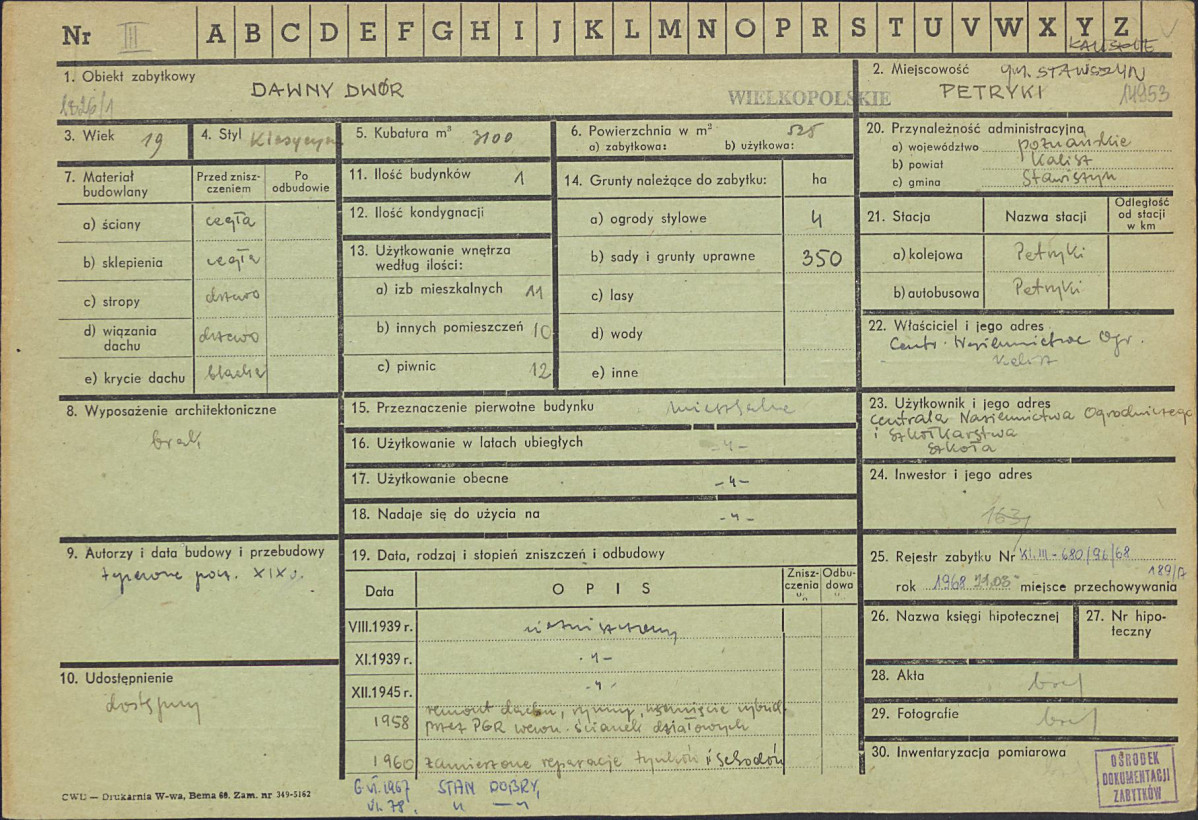 Nr III A B C D E F G H I J K L M N O P R S T U V W X Y Z
KALISKIE
1. Obiekt zabytkowy
DAWNY DWÓR
1826/1
WIELKOPOLSKIE
2. Miejscowość gm. STAWISZYN
PETRYKI 14953
3. Wiek 19
4. Styl Klasycyzm
5. Kubatura m³ 3100
6. Powierzchnia w m² 525
a) zabytkowa: b) użytkowa:
20. Przynależność administracyjna
a) województwo poznańskie
b) powiat Kalisz
c) gmina Stawiszyn
7. Materiał budowlany
Przed zniszczeniem
Po odbudowie
a) ściany cegła
b) sklepienia cegła
c) stropy drzewo
d) wiązania dachu drzewo
e) krycie dachu blacha
11. Ilość budynków 1
12. Ilość kondygnacji
13. Użytkowanie wnętrza według ilości:
a) izb mieszkalnych 11
b) innych pomieszczeń 10
c) piwnic 12
14. Grunty należące do zabytku: ha
a) ogrody stylowe 4
b) sady i grunty uprawne 350
c) lasy
d) wody
e) inne
21. Stacja Nazwa stacji Odległość od stacji w km
a) kolejowa Petryki
b) autobusowa Petryki
22. Właściciel i jego adres
Centr. Nasiennictwa Ogr.
Kalisz
8. Wyposażenie architektoniczne
brak
15. Przeznaczenie pierwotne budynku mieszkalne
16. Użytkowanie w latach ubiegłych -"-
17. Użytkowanie obecne -"-
18. Nadaje się do użycia na -"-
23. Użytkownik i jego adres
Centrala Nasiennictwa Ogrodniczego
i Szkółkarstwa
Szkoła
24. Inwestor i jego adres
163
9. Autorzy i data budowy i przebudowy
19. Data, rodzaj i stopień zniszczeń i odbudowy
Data OPIS Zniszczenia "/" Odbudowa "
VIII.1939 r. niezniszczony
XI.1939 r. -"-
XII.1945 r. -"-
1958 remont dachu, rynny,
przez PGR wewn. ścianek działowych
1960 zamierzone reparacje tynków i schodów
25. Rejestr zabytku Nr Kl.III-680/96/68
189/A
rok 1968 21.03 miejsce przechowywania
26. Nazwa księgi hipotecznej
27. Nr hipoteczny
10. Udostępnienie
dostępny
28. Akta brak
29. Fotografie brak
30. Inwentaryzacja pomiarowa
OŚRODEK
DOKUMENTACJI
ZABYTKÓW
CWD — Drukarnia W-wa, Bema 60. Zam. nr 349-5162
6.VI.1967 STAN DOBRY,
VI.78. " — "